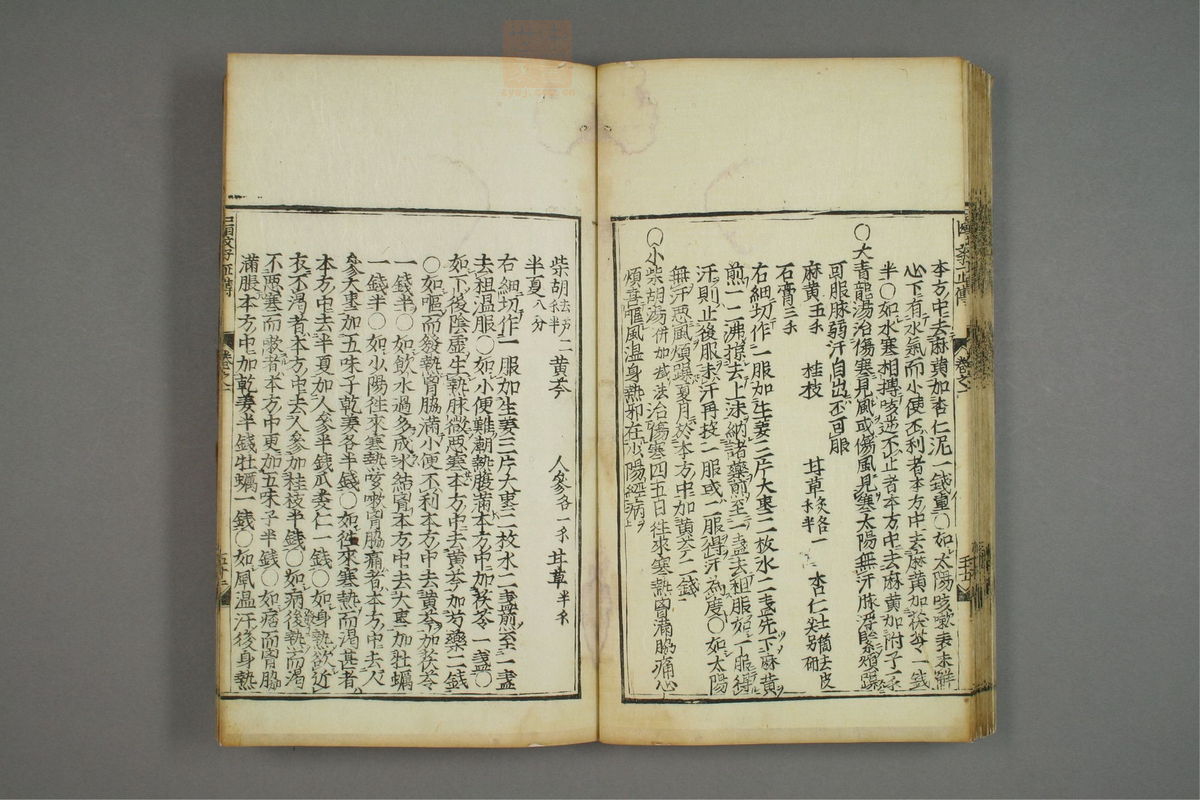 本方中去麻黄加杏仁泥一錢重○如太陽咳嗽表未解
心下有水氣而小便不利者本方中去麻黄加茯苓一錢
半○如水寒相搏咳逆不止者本方中去麻黄加附子一
○大青龍湯治傷寒見風或傷風見寒太陽無汗脉浮緊煩躁
可服脉弱汗自出不可服
麻黄 桂枝 甘草炙各一 杏仁七箇去皮尖另研
石膏
右細切作一服加生姜三片大棗二枚水二盞先下麻黄
煎一二沸掠去上沫納諸藥煎至一盞去柤服如一服得
汗則止後服未汗再投一服或二服得汗為度○如太陽
無汗惡風煩躁夏月於本方中加黄芩二錢
○小柴胡湯併加减法治傷寒四五日徃來寒熱胷滿脇痛心
煩喜嘔風温身熱邪在少陽經病
柴胡去芦 黄芩 人參各一 甘草半
半夏八分
右細切作一服加生姜三片大棗二枚水二盞煎至一盞
去柤温服○如小便難潮熱腹滿本方中加茯苓一盞○
如下後陰虚生熱脉微惡寒本方中去黄芩加芍藥二錢
○如嘔而發熱胷脇滿小便不利本方中去黄芩加茯苓
一錢半○如飲水過多成水結胷本方中去大棗加牡蠣
一錢半○如少陽徃來寒熱咳嗽胷脇痛者本方中去人
參大棗加五味子乾姜各半錢○如徃來寒熱而渴甚者
本方中去半夏加人參半錢瓜蔞仁一錢○如身熱欲近
衣不渴者本方中去人參加桂枝半錢○如病後熱而渴
不惡寒而嗽者本方中更加五味子半錢○如痞而胷脇
滿脹本方中加乾姜半錢牡蠣一錢○如風温汗後身熱